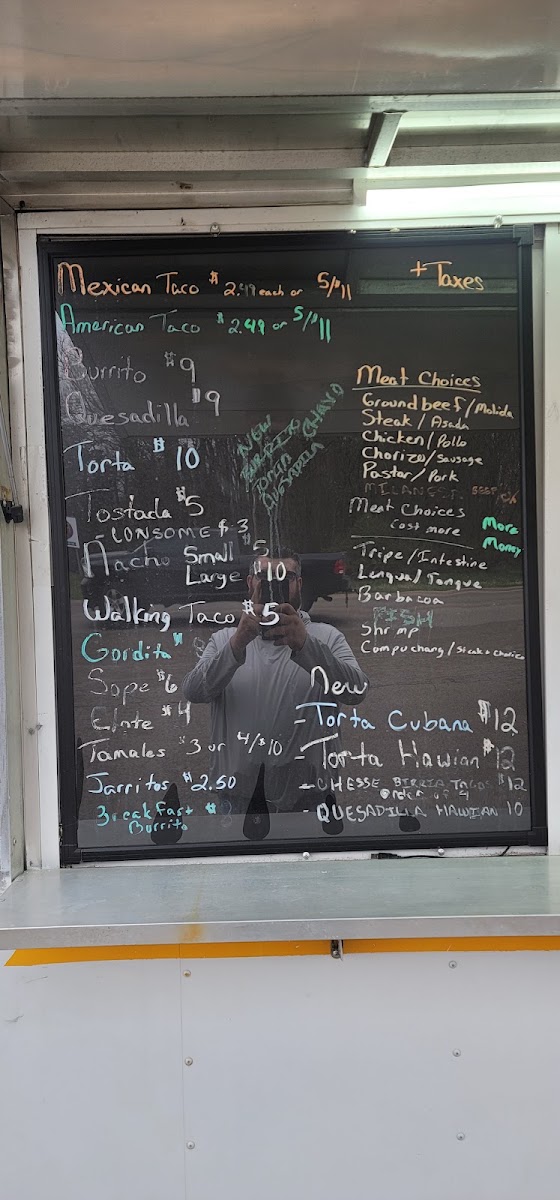 Mexican Taco $2.49 each or 5/$11
+ Taxes
American Taco $2.49 or 5/$11
Burrito $9
Quesadilla $9
Torta $10
Tostada $5
- CONSOME $3
Nacho Small $5
Large $10
Walking Taco $5
Gordita $
Sope $6
Elote $4
Tamales $3 or 4/$10
Jarritos $2.50
Breakfast $
Burrito
NEW
BIRRIA
QUESADILA
Meat Choices
Ground beef/Molida
Steak/Asada
Chicken/Pollo
Chorizo/Sausage
Pastor/Pork
MILANESA BEEF
Meat Choices
cost more
More
Money
Tripe/Intestine
Lengua/Tongue
Barbacoa
FISH
Shrimp
Compuchang/Steak & Chorizo
New
- Torta Cubana $12
- Torta Hawian $12
- CHESSE BIRRIA TACOS $12
order of 4
- QUESADILLA HAWIAN 10